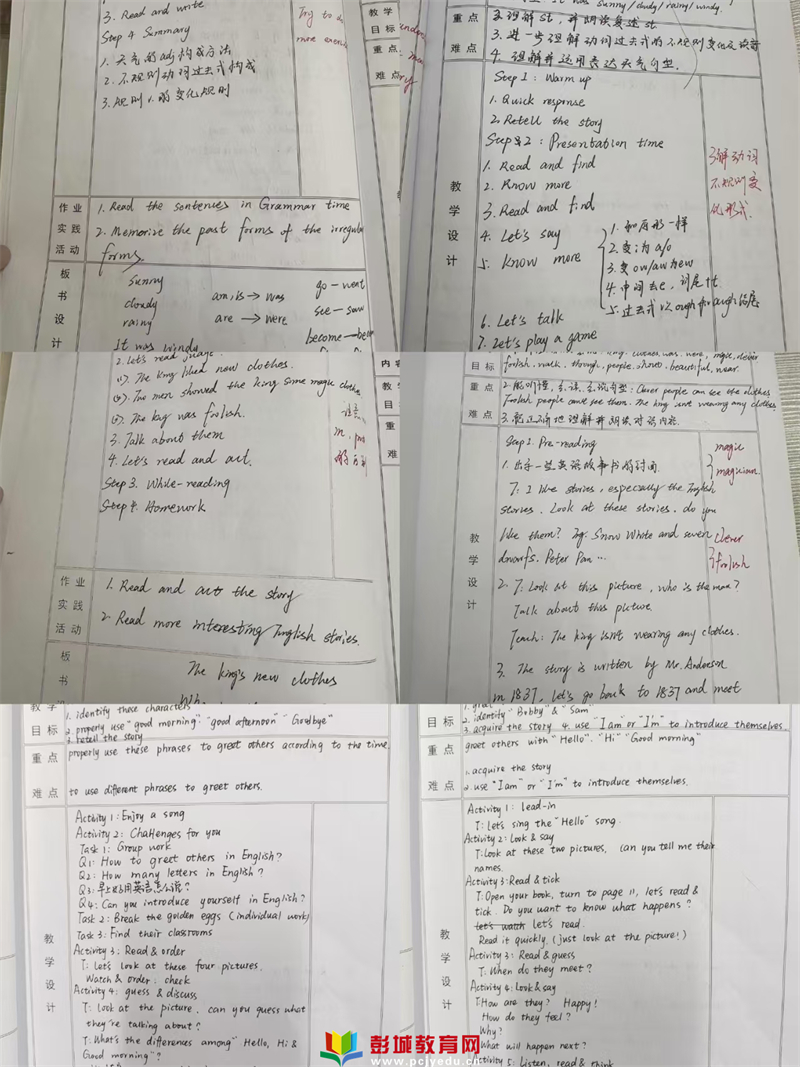 3. Read and write
Step 4 Summary
1. 天气的adj构成方法
2. 不规则动词过去式构成
3. 规则
变化规则
Try to
more
作业
实践
活动
1. Read the sentences in Grammar time
2. Memorize the past forms of the irregular
forms.
板
书
设
计
sunny
cloudy
rainy
It was windy
am, is → was
are → were
go — went
see — saw
become —
教学
目标
重点
难点
was sunny/cloudy/rainy/windy.
重点
难点
2. 理解St, 并朗读复述st
3. 进一步理解动词过去式的不规则变化及读音
4. 理解并运用表达天气句型.
教
学
设
计
Step 1: Warm up
1. Quick response
2. Retell the story
Step 2: Presentation time
1. Read and find
2. Know more
3. Read and find
4. Let's say
5. Know more
1. 如原形一样
2. 变i为a/o
3. 变ow/aw/new
4. 中间去e, 词尾+t
5. 过去式以ough
6. Let's talk
7. Let's play a game
了解动词
不规则变
化形式.
2. Let's read
The king liked new clothes.
The men showed the king some magic clothes
The king was foolish.
3. Talk about them
4. Let's read and act.
Step 3. While-reading
Step 4. Homework
作业
实践
活动
1. Read and act the story
2. Read more interesting English stories.
板
书
The king's new clothes
内容
目标
foolish, walk, through, people, shout, beautiful, wear.
重点
难点
2. 能听懂, 会读, 会说句型: Clever people can see the clothes
Foolish people can't see them. The king isn't wearing any clothes.
3. 能正确地理解并朗读对话内容.
教
学
设
计
Step 1. Pre-reading
1. 出示一些英语故事书的封面.
T: I like stories, especially the English
stories. Look at these stories, do you
like them? Eg: Snow White and seven
dwarfs. Peter Pan ...
2. T: Look at this picture, who is the man?
Talk about this picture
Teach: The king isn't wearing any clothes.
3. The story is written by Mr. Anderson
in 1837. Let's go back to 1837 and meet
magic
magician
clever
foolish
教学
目标
1. identify these characters
2. properly use "good morning" "good afternoon" "Goodbye"
3. retell the story
重点
难点
properly use these phrases to greet others according to the time.
to use different phrases to greet others.
教
学
设
计
Activity 1: Enjoy a song
Activity 2: Challenges for you
Task 1: Group work
Q1: How to greet others in English?
Q2: How many letters in English?
Q3: 早上好用英语怎么说?
Q4: Can you introduce yourself in English?
Task 2: Break the golden eggs (individual work)
Task 3: Find their classrooms
Activity 3: Read & order
T: Let's look at these four pictures.
Watch & order; check
Activity 4: guess & discuss
T: look at the picture, can you guess what
they're talking about?
T: What's the differences among "Hello, Hi &
Good morning"?
目标
2. identify "Bobby" & "Sam"
3. acquire the story 4. use "I am" or "I'm" to introduce themselves.
重点
难点
greet others with "Hello". "Hi" "Good morning"
1. acquire the story
2. use "I am" or "I'm" to introduce themselves.
教
学
设
计
Activity 1: Lead-in
T: Let's sing the "Hello" song.
Activity 2: Look & say
T: Look at these two pictures, can you tell me their
names.
Activity 3: Read & tick
T: Open your book, turn to page 11, let's read &
tick. Do you want to know what happens?
let's watch let's read.
Read it quickly. (just look at the picture!)
Activity 3: Read & guess
T: When do they meet?
Activity 4: Look & say
T: How are they? Happy!
How do they feel?
Why?
What will happen next?
Activity 5: Listen, read & think
彭城教育网
www.pcjyedu.cn